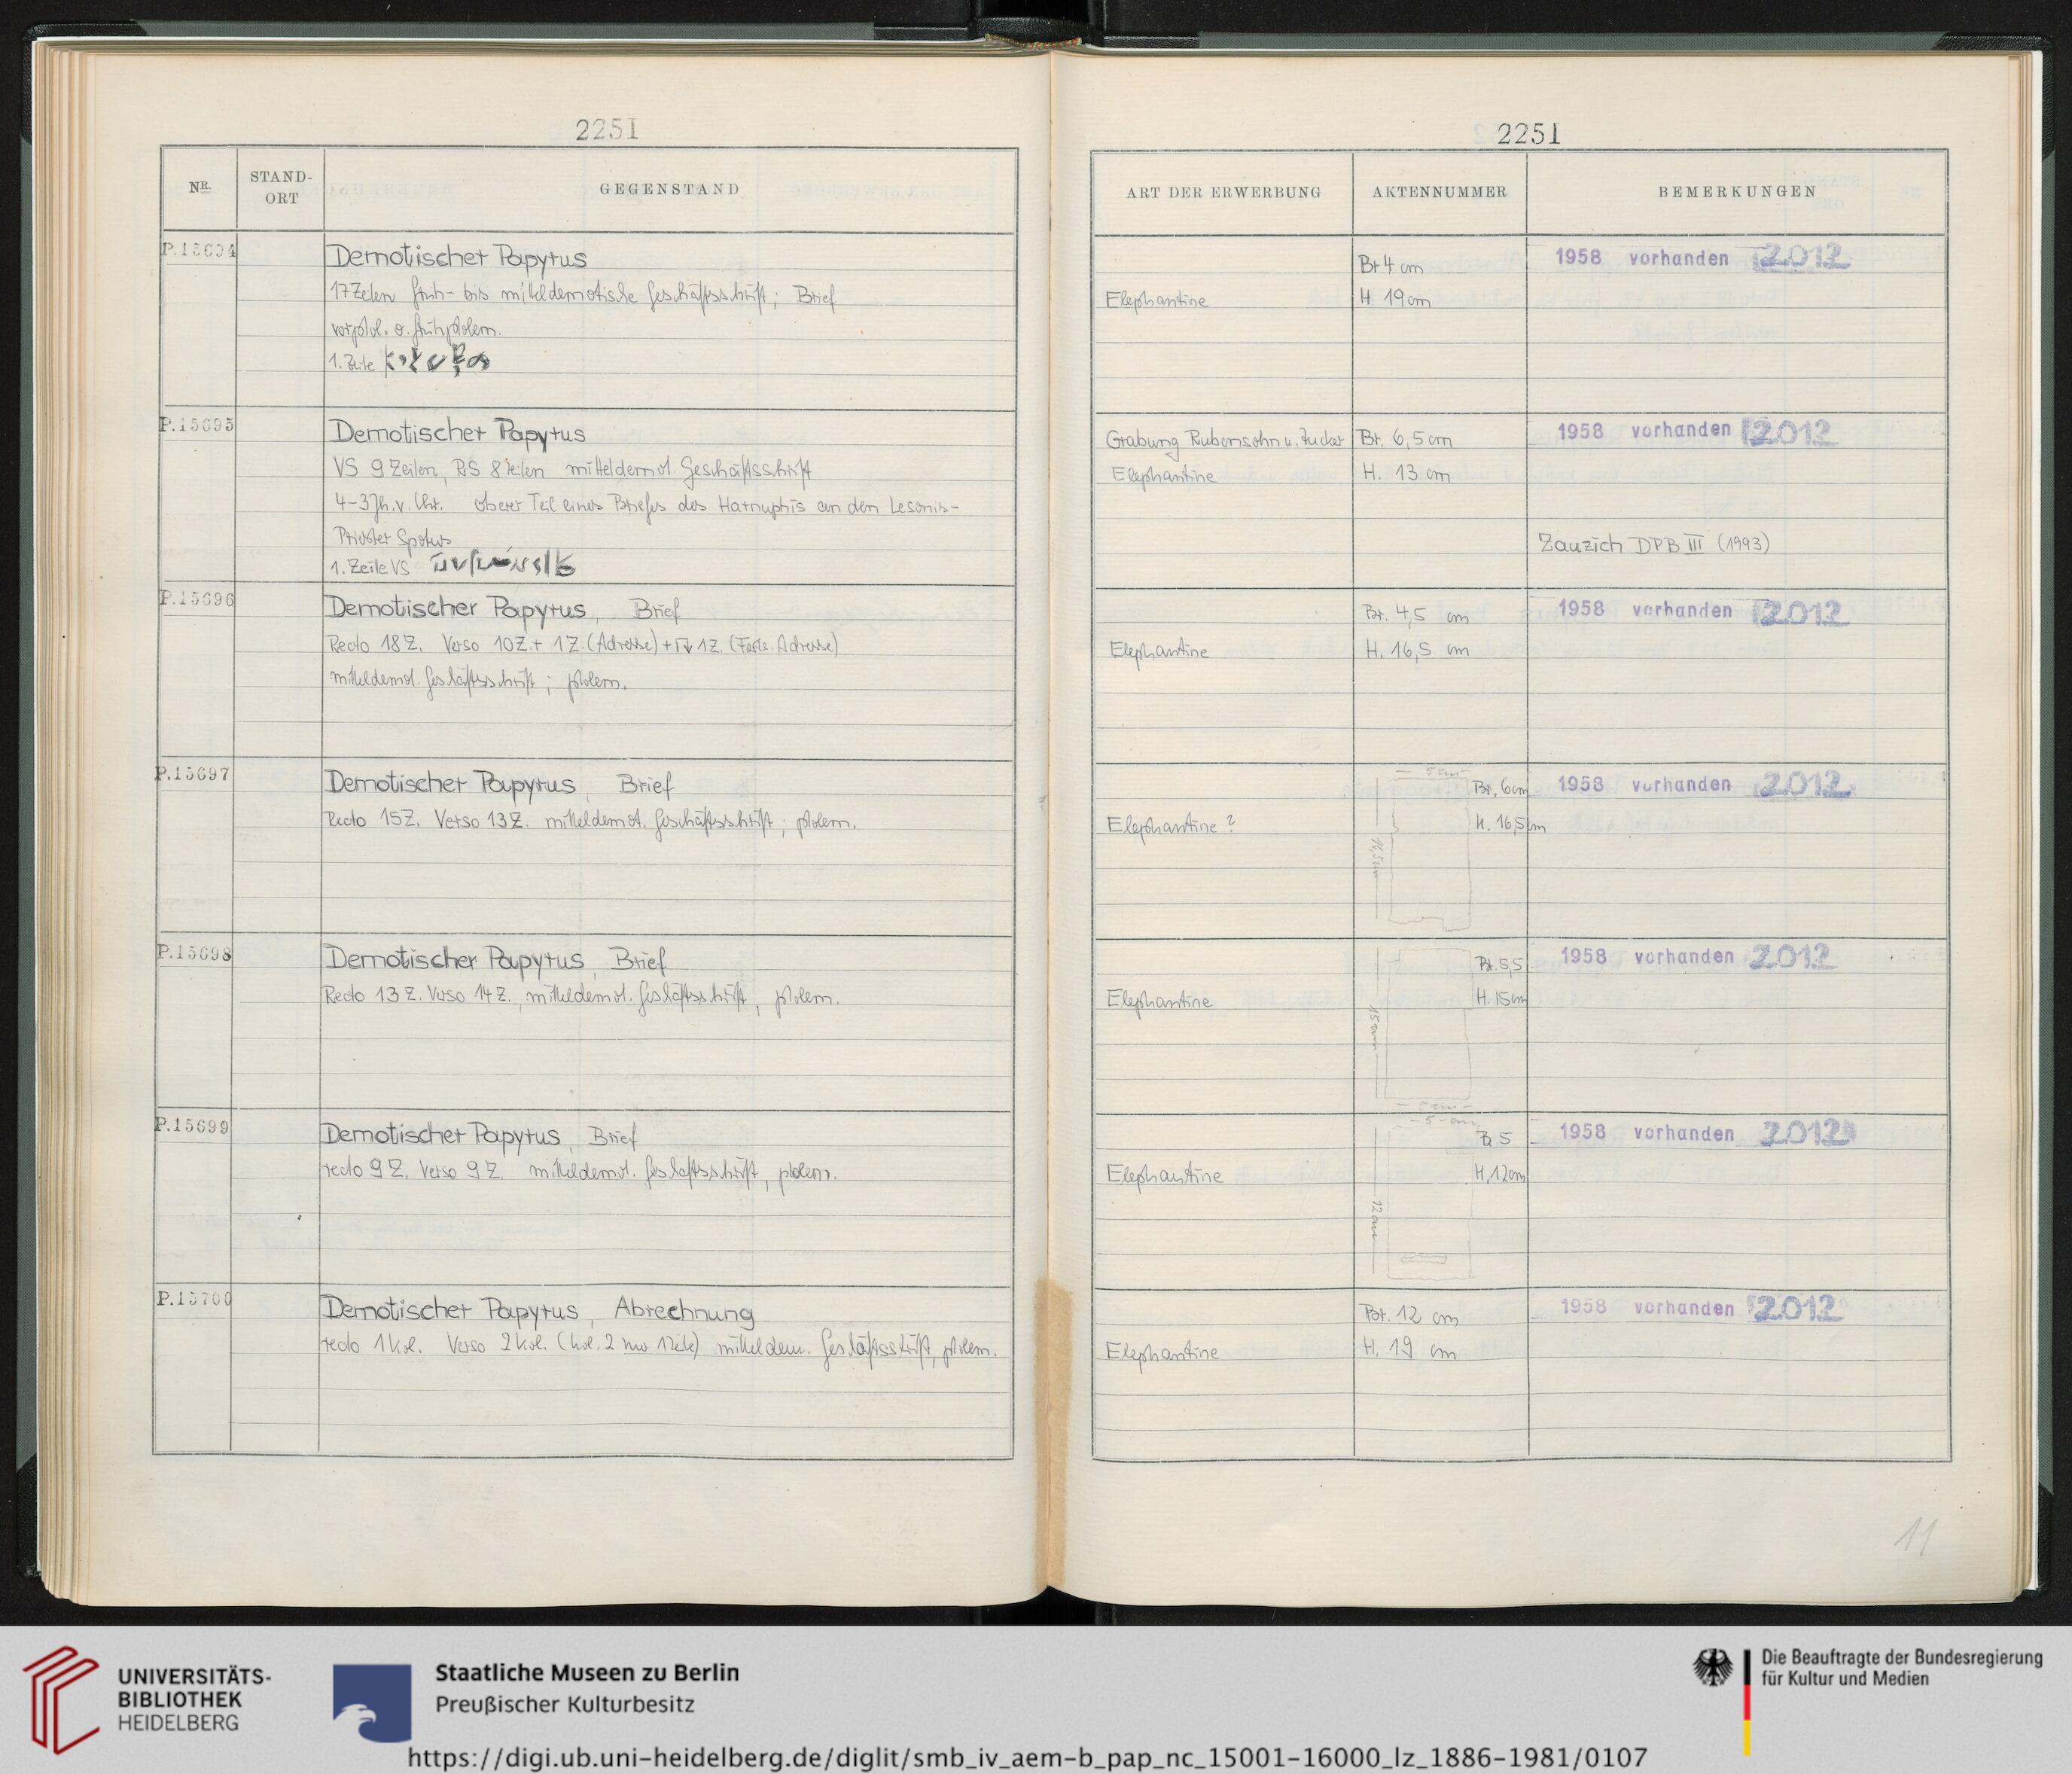 2251
NR.
STAND-ORT
GEGENSTAND
P.15694
Demotischer Papyrus
17 Zeilen früh- bis mitteldemotische Geschäftsschrift; Brief
vorptol. o. frühptolem.
1. Zeile
P.15695
Demotischer Papyrus
VS 9 Zeilen, RS 8 Zeilen mitteldemot. Geschäftsschrift
4-3 Jh. v. Chr. Oberer Teil eines Briefes des Harnuphis an den Lesonis-
Priester Spotus
1. Zeile VS
P.15696
Demotischer Papyrus, Brief
Recto 18 Z. Verso 10 Z. + 1 Z. (Adresse) + 1 Z. (Forts. Adresse)
mitteldemot. Geschäftsschrift; ptolem.
P.15697
Demotischer Papyrus, Brief
Recto 15 Z. Verso 13 Z. mitteldemot. Geschäftsschrift; ptolem.
P.15698
Demotischer Papyrus, Brief
Recto 13 Z. Verso 14 Z., mitteldemot. Geschäftsschrift, ptolem.
P.15699
Demotischer Papyrus, Brief
recto 9 Z. Verso 9 Z. mitteldemot. Geschäftsschrift, ptolem.
P.15700
Demotischer Papyrus, Abrechnung
recto 1 Kol. Verso 2 Kol. (Kol. 2 nur 1 Zeile) mitteldem. Geschäftsschrift, ptolem.
2251
ART DER ERWERBUNG
AKTENNUMMER
BEMERKUNGEN
Br 4 cm
1958 vorhanden 2012
Elephantine
H. 19 cm
Grabung Rubensohn u. Zucker
Br. 6,5 cm
1958 vorhanden 2012
Elephantine
H. 13 cm
Zauzich DPB III (1993)
Br. 4,5 cm
1958 vorhanden 2012
Elephantine
H. 16,5 cm
5 cm
Br. 6 cm
1958 vorhanden 2012
Elephantine ?
H. 16,5 cm
16,5 cm
Br. 5,5
1958 vorhanden 2012
Elephantine
H. 15 cm
15 cm
5 cm
5 cm
5
1958 vorhanden 2012
Elephantine
H. 12 cm
12 cm
Br. 12 cm
1958 vorhanden 2012
Elephantine
H. 19 cm
11
UNIVERSITÄTS-
BIBLIOTHEK
HEIDELBERG
Staatliche Museen zu Berlin
Preußischer Kulturbesitz
Die Beauftragte der Bundesregierung
für Kultur und Medien
https://digi.ub.uni-heidelberg.de/diglit/smb_iv_aem-b_pap_nc_15001-16000_lz_1886-1981/0107